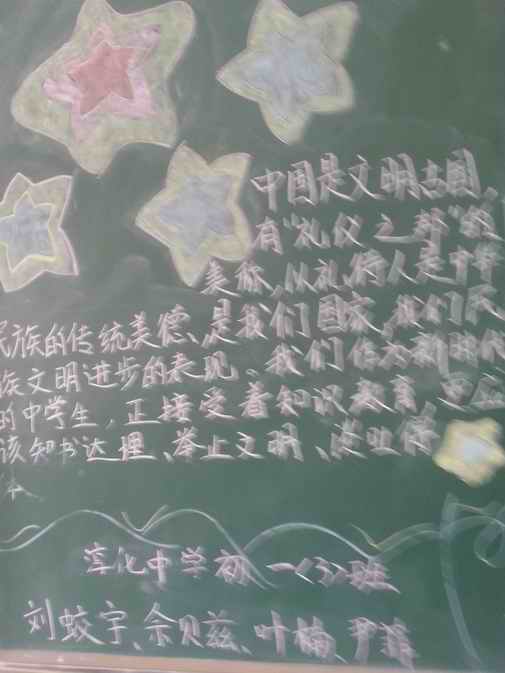 中国是文明古国,
有"礼仪之邦"的
美称,以礼待人是中华
民族的传统美德、是我们国家,我们民
族文明进步的表现、我们作为新时代
的中学生,正接受着知识教育,更应
该知书达理、举止文明、谈吐得
体
淳化中学初一(3)班
刘蛟宇、佘贝兹、叶楠 尹菲